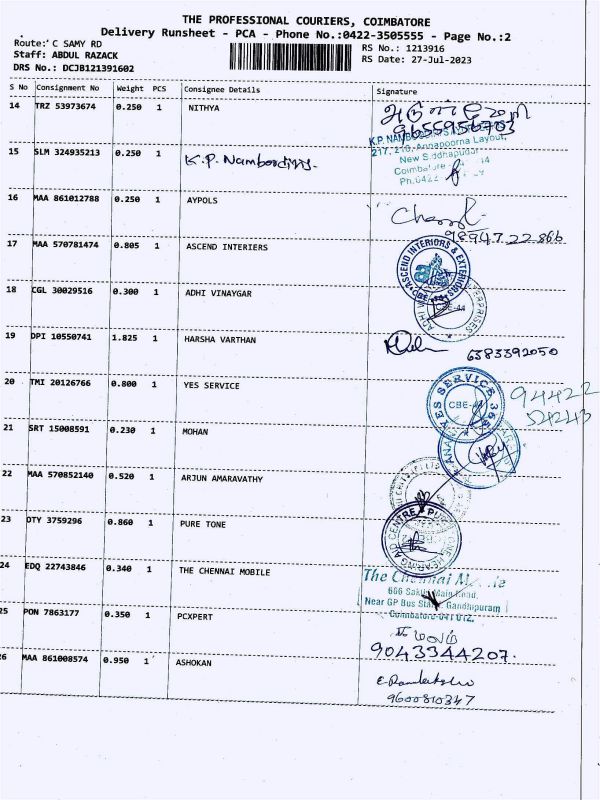 THE PROFESSIONAL COURIERS, COIMBATORE
Delivery Runsheet - PCA - Phone No.:0422-3505555 - Page No.:2
Route: C SAMY RD
RS No.: 1213916
Staff: ABDUL RAZACK
RS Date: 27-Jul-2023
DRS No.: DCJB121391602
S No Consignment No Weight PCS Consignee Details Signature
14 TRZ 53973674 0.250 1 NITHYA
9655956703
15 SLM 324935213 0.250 1 K.P. Namboodiris.
217, 218, Annapoorna Layout,
New Siddhapudur
Coimbatore
Ph.0422
16 MAA 861012788 0.250 1 AYPOLS
98947 22866
17 MAA 570781474 0.805 1 ASCEND INTERIERS
ASCEND INTERIORS & EXTERIORS
CBE-44
18 CGL 30029516 0.300 1 ADHI VINAYGAR
CBE-44
19 DPI 10550741 1.825 1 HARSHA VARTHAN
6383392050
20 TMI 20126766 0.800 1 YES SERVICE
YES SERVICE 365
CBE-44
94422
54243
21 SRT 15008591 0.230 1 MOHAN
22 MAA 570852140 0.520 1 ARJUN AMARAVATHY
23 OTY 3759296 0.860 1 PURE TONE
PURE TONE HEARING AID CENTRE
24 EDQ 22743846 0.340 1 THE CHENNAI MOBILE
The Chennai
666 Main Road,
Near GP Bus Stand, Gandhipuram
Coimbatore-641 012.
25 PON 7863177 0.350 1 PCXPERT
9043944207
26 MAA 861008574 0.950 1 ASHOKAN
9600810347